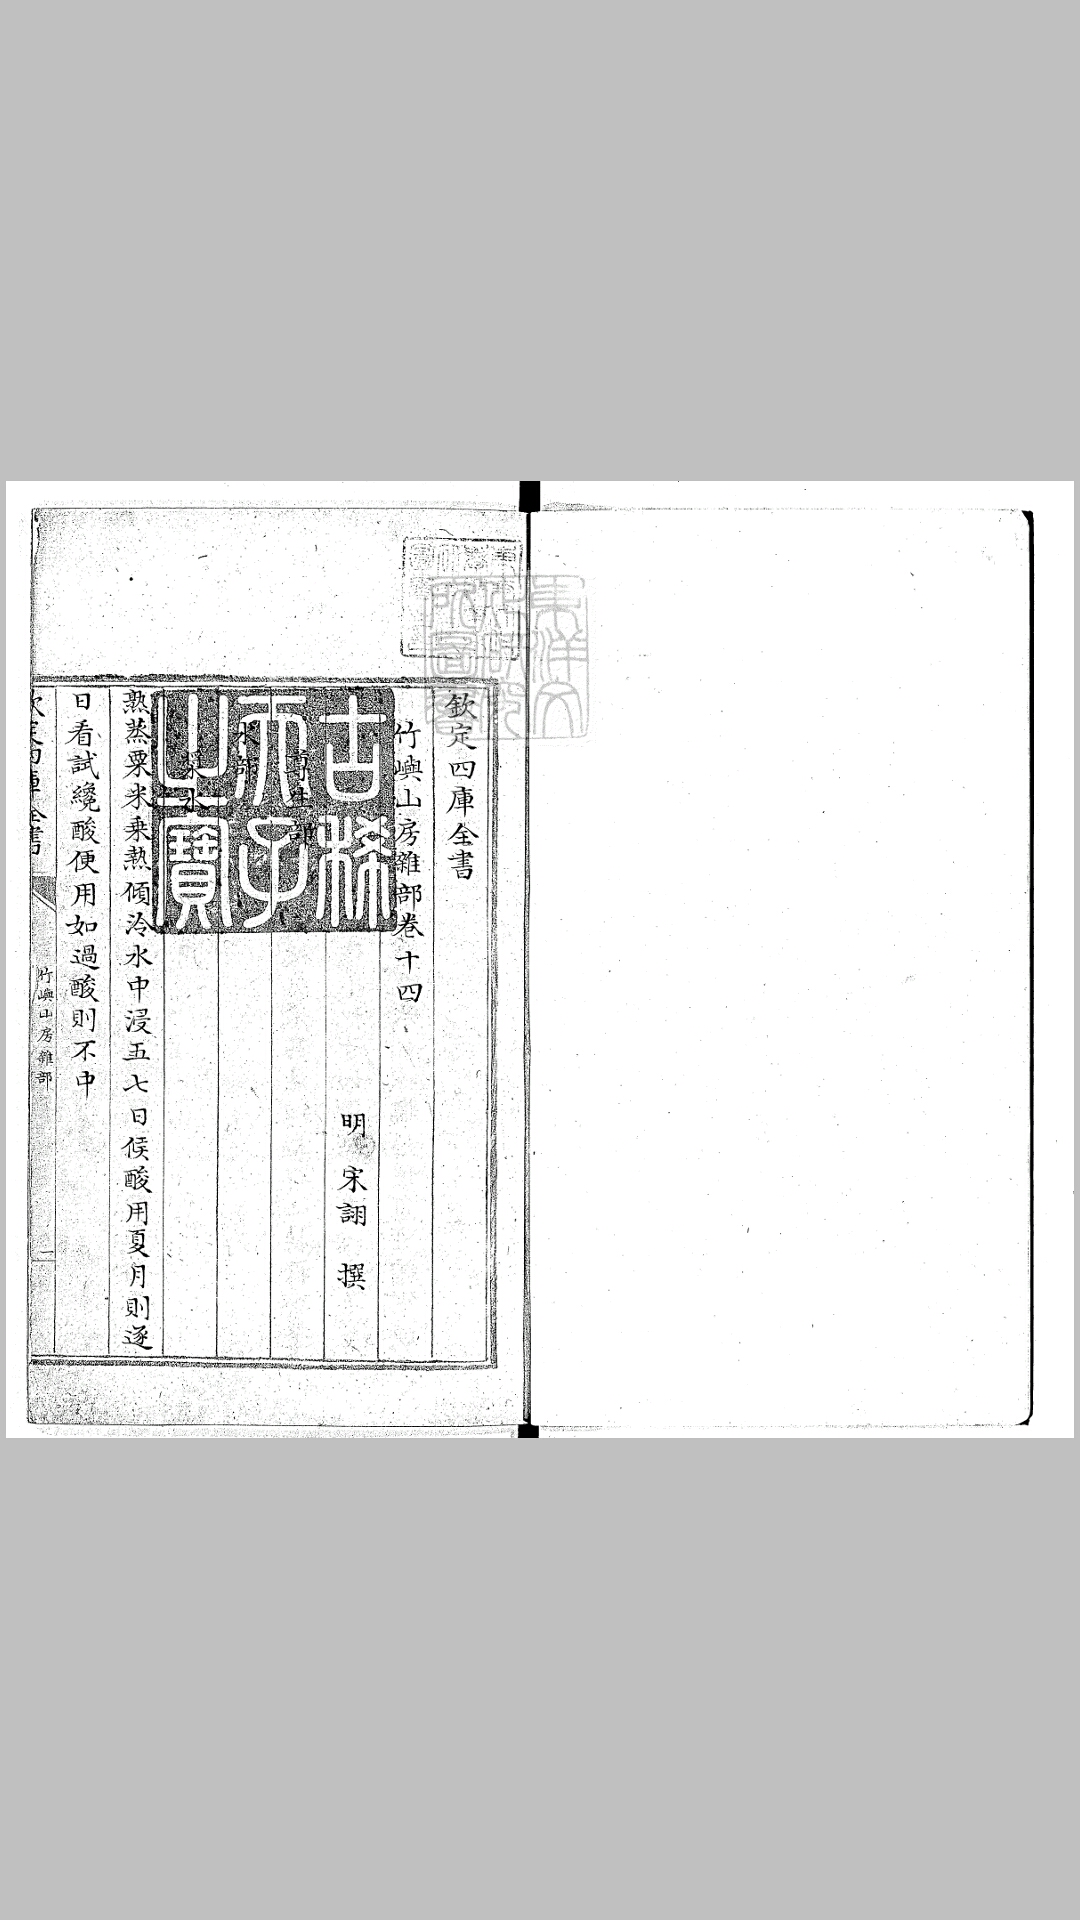 欽定四庫全書
竹嶼山房雜部卷十四
明　宋詡　撰
尊生部
水部
漿水
熟蒸粟米乗熱傾冷水中浸五七日候酸用夏月則逐
日看試纔酸便用如過酸則不中
竹嶼山房雜部
一
古稀天子之寶